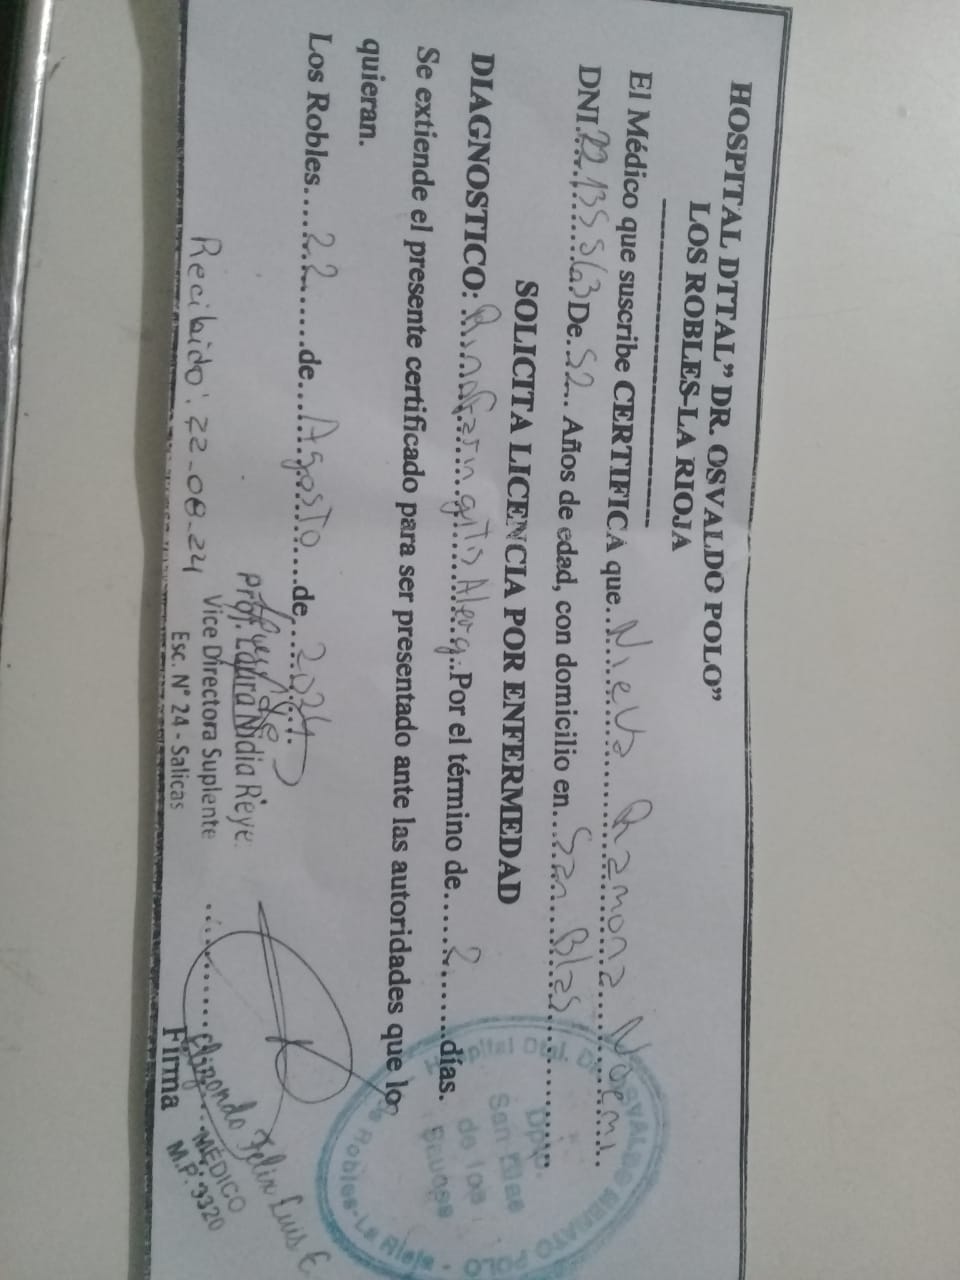 HOSPITAL DTTAL” DR. OSVALDO POLO”
LOS ROBLES-LA RIOJA
El Médico que suscribe CERTIFICA que...Nieva Ramona Noemi..
DNI.22.135.563 De.52.. Años de edad, con domicilio en...San Blas
SOLICITA LICENCIA POR ENFERMEDAD
DIAGNOSTICO: Rinofaringitis Alerg..Por el término de......2......días.
Se extiende el presente certificado para ser presentado ante las autoridades que lo
quieran.
Los Robles....22.......de...Agosto...de...2024
Recibido: 22-08-24
Prof. Laura Nidia Reye
Vice Directora Suplente
Esc. N° 24 - Salicas
Felix Luis E
MÉDICO
M.P. 3320
Firma
Hospital Dtal. Dr. OSVALDO RENATO POLO
Dpto.
San Blas
de los
Sauces
Los Robles-La Rioja